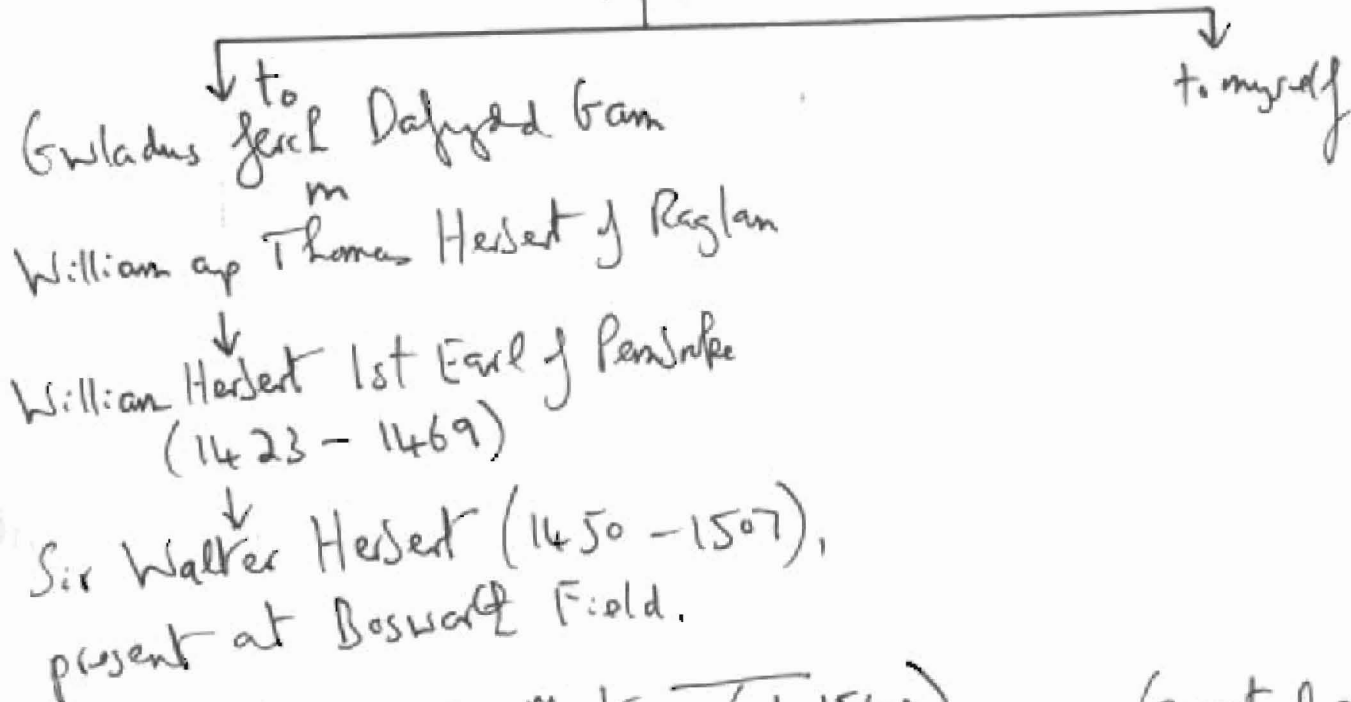 to
to myself
Gwladus ferch Dafydd Gam
m
William ap Thomas Herbert of Raglan
William Herbert 1st Earl of Pembroke
(1423 - 1469)
Sir Walter Herbert (1450 - 1507),
present at Bosworth Field.